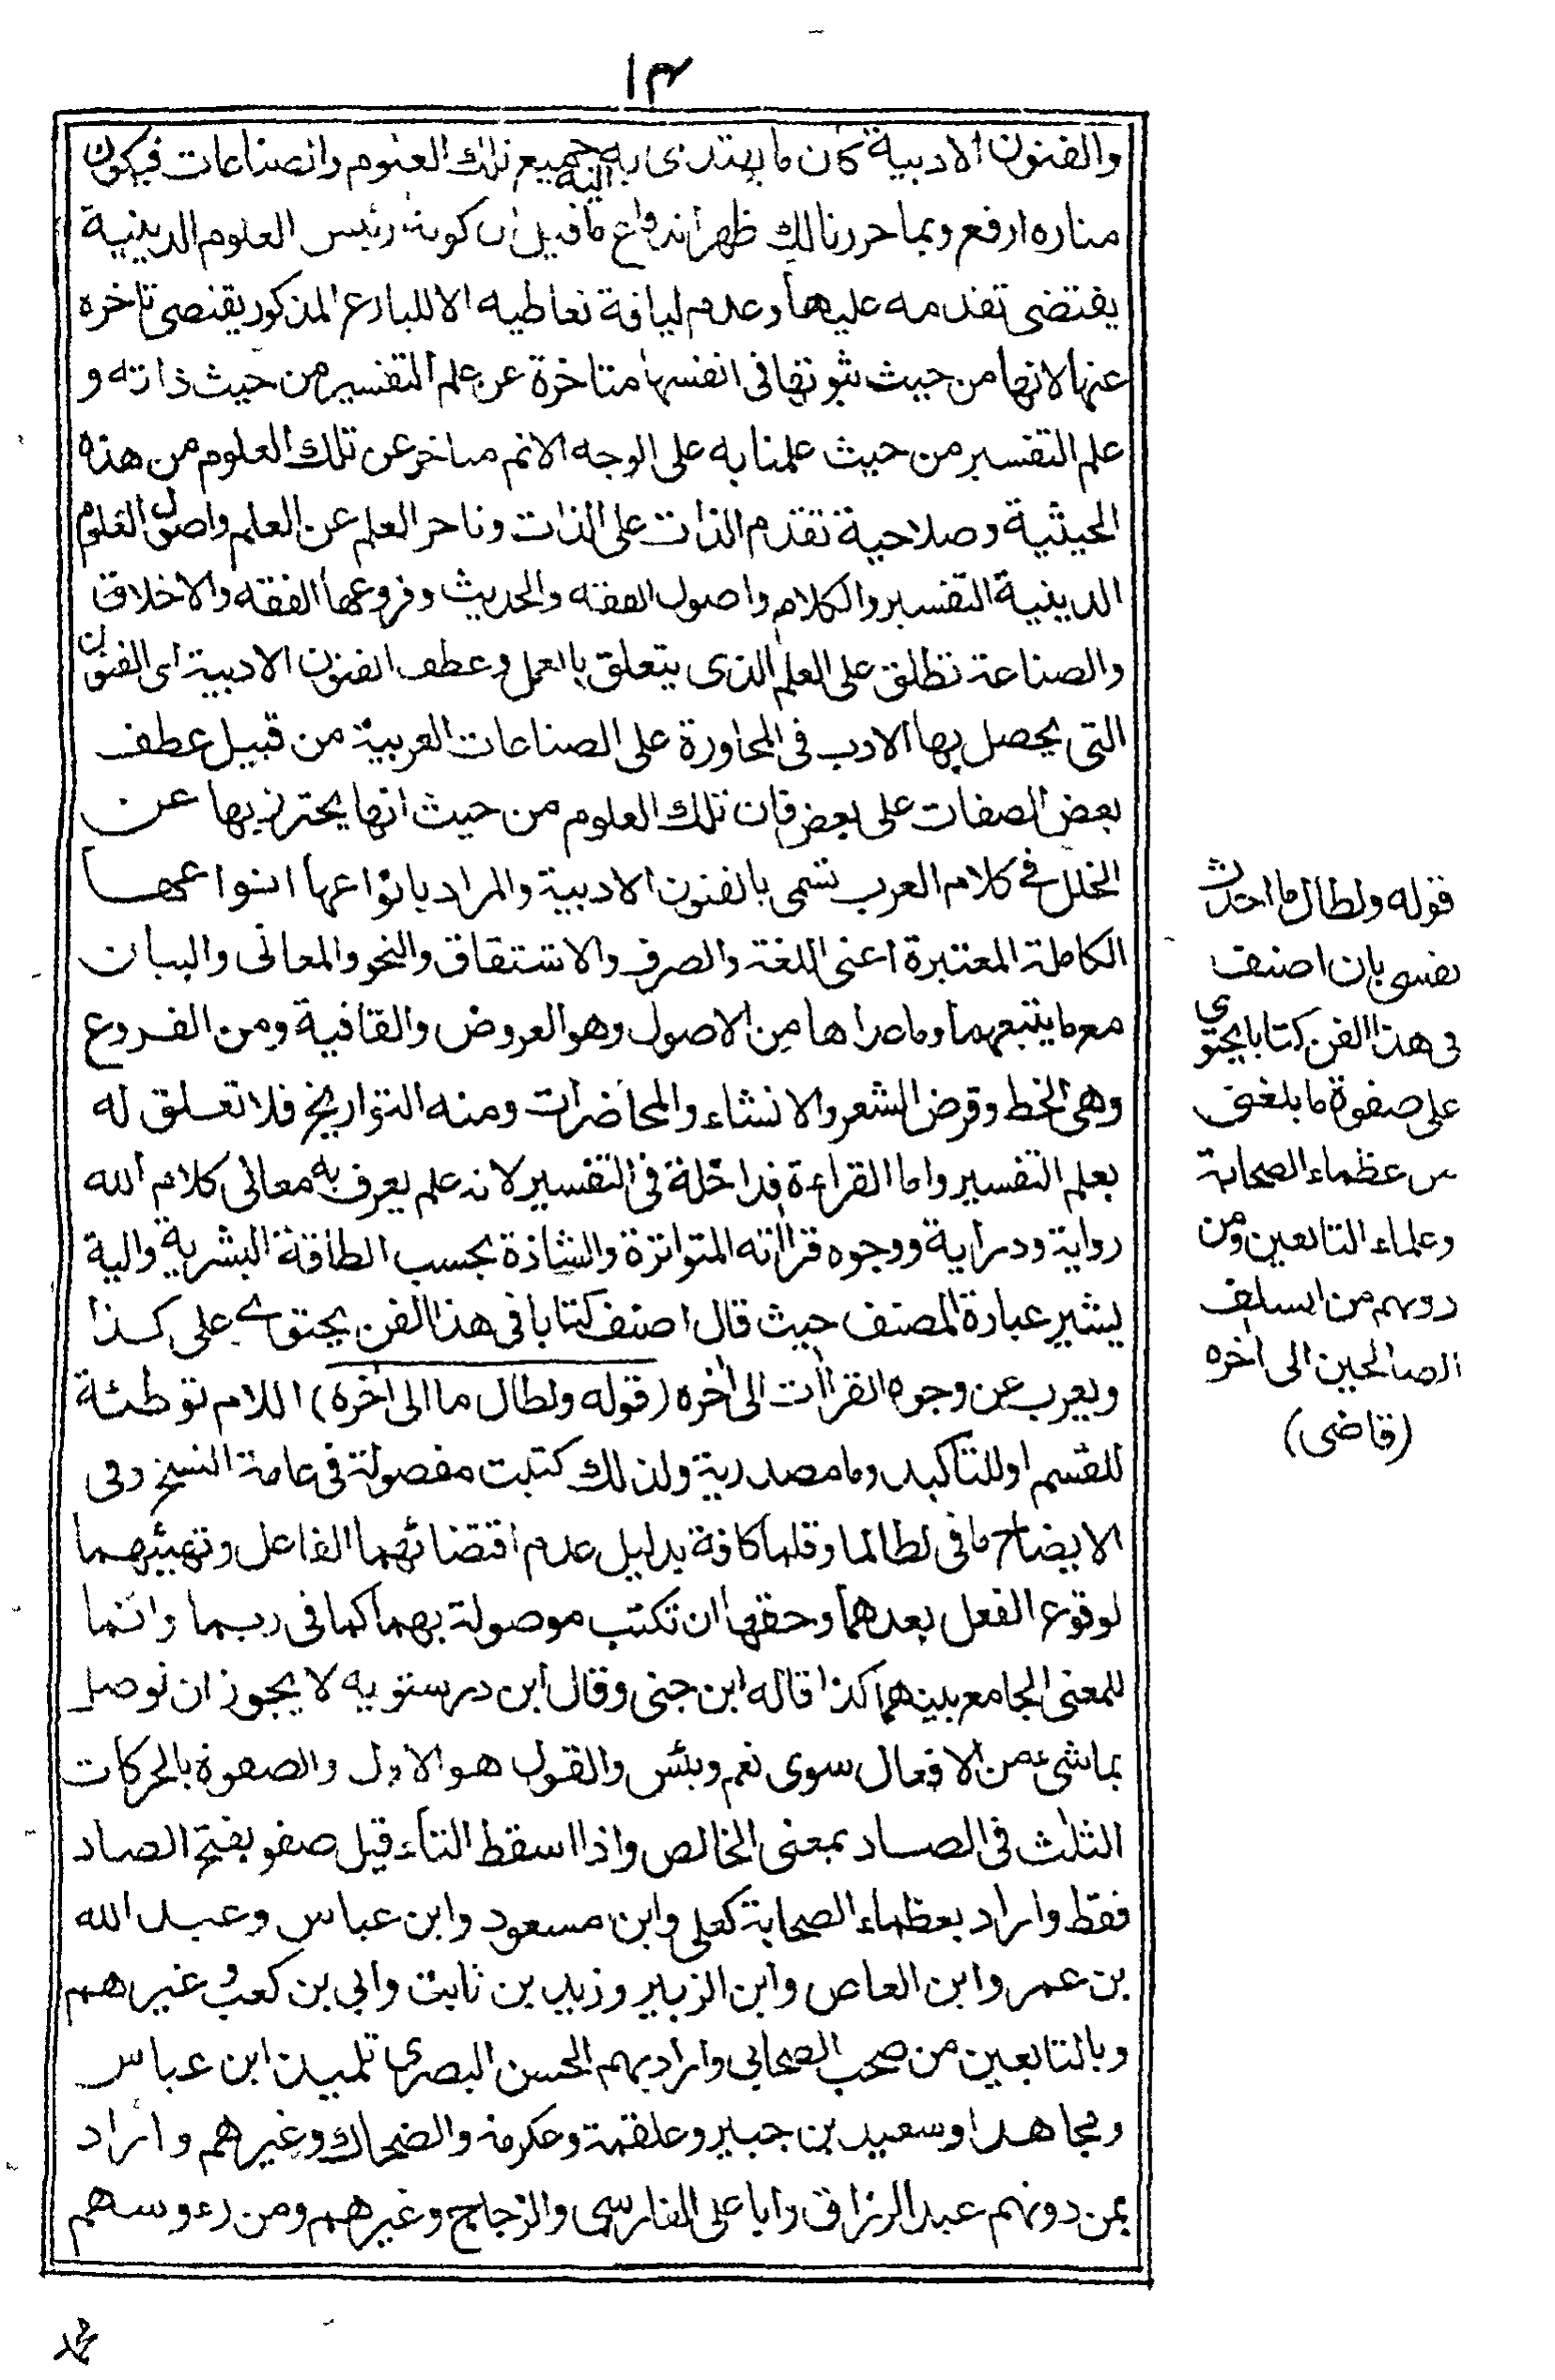 ١٣
والفنون الادبية كان ما يهتدى به اليه جميع تلك العلوم والصناعات فيكون
مناره ارفع وبما حررنا لك ظهر اندفاع ما قيل ان كونه رئيس العلوم الدينية
يقتضى تقدمه عليها وعدم لياقة تعاطيه الا للبارع المذكور يقتضى تاخره
عنها لانها من حيث ثبوتها فى انفسها متاخرة عن علم التفسير من حيث ذاته و
علم التفسير من حيث علمنا به على الوجه الاتم متاخر عن تلك العلوم من هذه
الحيثية وصلاحية تقدم الذات على الذات وتاخر العلم عن العلم واصول العلوم
الدينية التفسير والكلام واصول الفقه والحديث وفروعها الفقه والاخلاق
والصناعة تطلق على العلم الذى يتعلق بالعمل وعطف الفنون الادبية اى الفنون
التى يحصل بها الادب فى المحاورة على الصناعات العربية من قبيل عطف
بعض الصفات على بعض فان تلك العلوم من حيث انها يحترز بها عن
الخلل فى كلام العرب تسمى بالفنون الادبية والمراد بانواعها انواعها
الكاملة المعتبرة اعنى اللغة والصرف والاشتقاق والنحو والمعانى والبيان
مع ما يتبعهما وما عداها من الاصول وهو العروض والقافية ومن الفروع
وهى الخط وقرض الشعر والانشاء والمحاضرات ومنه التواريخ فلا تعلق له
بعلم التفسير واما القراءة فداخلة فى التفسير لانه علم يعرف به معانى كلام الله
رواية ودراية ووجوه قراأته المتواترة والشاذة بحسب الطاقة البشرية والية
يشير عبارة المصنف حيث قال اصنف كتابا فى هذا الفن يحتوى على كذا
ويعرب عن وجوه القراأت الى اخره (قوله ولطال ما الى اخره) اللام توطئة
للقسم او للتاكيد وما مصدرية ولذلك كتبت مفصولة فى عامة النسخ وفى
الايضاح ما فى لطالما وقلما كافة بدليل عدم اقتضائهما الفاعل وتهيئهما
لوقوع الفعل بعدهما وحقها ان تكتب موصولة بهما كما فى ربما وانما
للمعنى الجامع بينهما كذا قاله ابن جنى وقال ابن درستويه لا يجوز ان توصل
بما شئ من الافعال سوى نعم وبئس والقول هو الاول والصفوة بالحركات
الثلث فى الصاد بمعنى الخالص واذا اسقط التاء قيل صفو بفتح الصاد
فقط واراد بعظماء الصحابة كعلى وابن مسعود وابن عباس وعبد الله
بن عمر وابن العاص وابن الزبير وزيد بن ثابت وابي بن كعب وغيرهم
وبالتابعين من صحب الصحابى واراد بهم الحسن البصرى تلميذ ابن عباس
ومجاهدا وسعيد بن جبير وعلقمة وعكرمة والضحاك وغيرهم واراد
بمن دونهم عبد الرزاق وابا على الفارسى والزجاج وغيرهم ومن رءوسهم
قوله ولطال ما احدث
نفسى بان اصنف
فى هذا الفن كتابا يحتوى
على صفوة ما بلغنى
من عظماء الصحابة
وعلماء التابعين ومن
دونهم من السلف
الصالحين الى اخره
(قاضى)
محمد